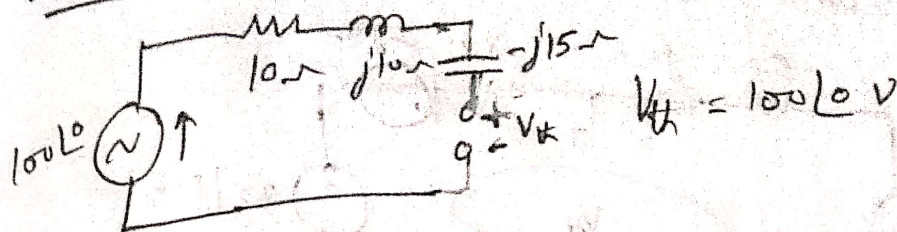 10Ω j10Ω -j15Ω
100∠0 + Vth - Vth = 100∠0 V